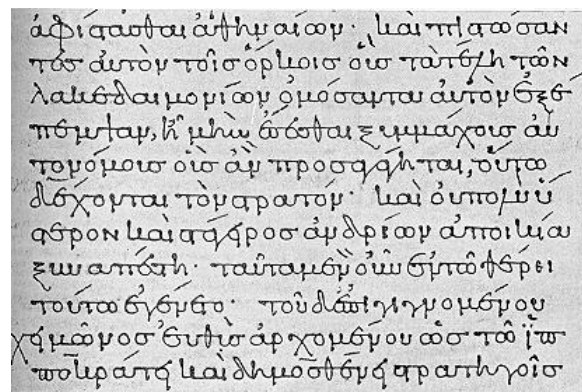 ἀφίστασθαι ἀθηναίων· καὶ πιστώσαν
τες αὐτὸν τοῖς ὅρκοις οὓς τὰ τέλη τῶν
λακεδαιμονίων ὀμόσαντα αὐτὸν ἐξέ
πεμψαν, ἦ μὴν ἔσεσθαι ξυμμάχους αὐ
τονόμους οὓς ἂν προσαγάγηται, οὕτω
δέχονται τὸν στρατόν· καὶ οὐ πολὺ ὕ
στερον καὶ στάγειρος ἀνδρίων ἀποικία
ξυναπέστη· ταῦτα μὲν οὖν ἐν τῶ θέρει
τούτω ἐγένετο· τοῦ δ' ἐπιγιγνομένου
χειμῶνος εὐθὺς ἀρχομένου ὡς τῶ ἱπ
ποκράτει καὶ δημοσθένει στρατηγοῖς